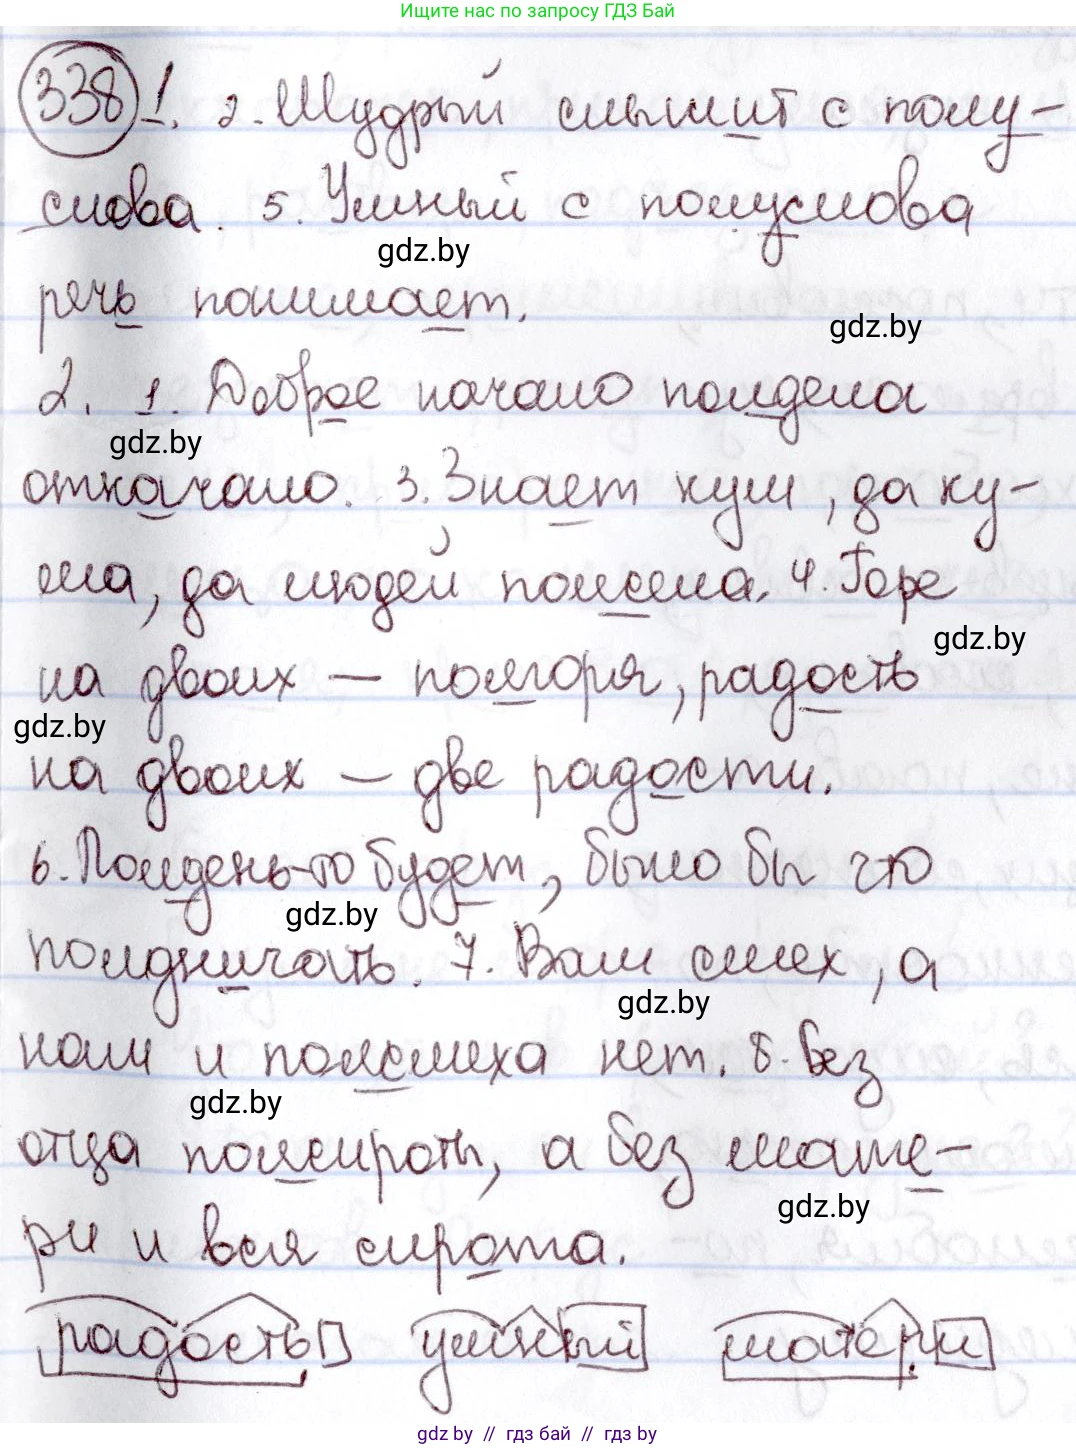 Ищите нас по запросу ГДЗ Бай
338 1. 2. Мудрый слышит с полу-
слова. 5. Умный с полуслова
gdz.by
речь понимает.
gdz.by
2. 1. Доброе начало полдела
gdz.by
откачало. 3. Знает кум, да ку-
ма, да людей полсела. 4. Горе
gdz.by
на двоих — полгоря, радость
gdz.by
на двоих — две радости.
6. Полдень-то будет, было бы что
gdz.by
полдничать. 7. Вам смех, а
gdz.by
нам и полсмеха нет. 8. Без
gdz.by
отца полсироты, а без мате-
gdz.by
ри и вся сирота.
радость умный матери
gdz.by // гдз бай // гдз by